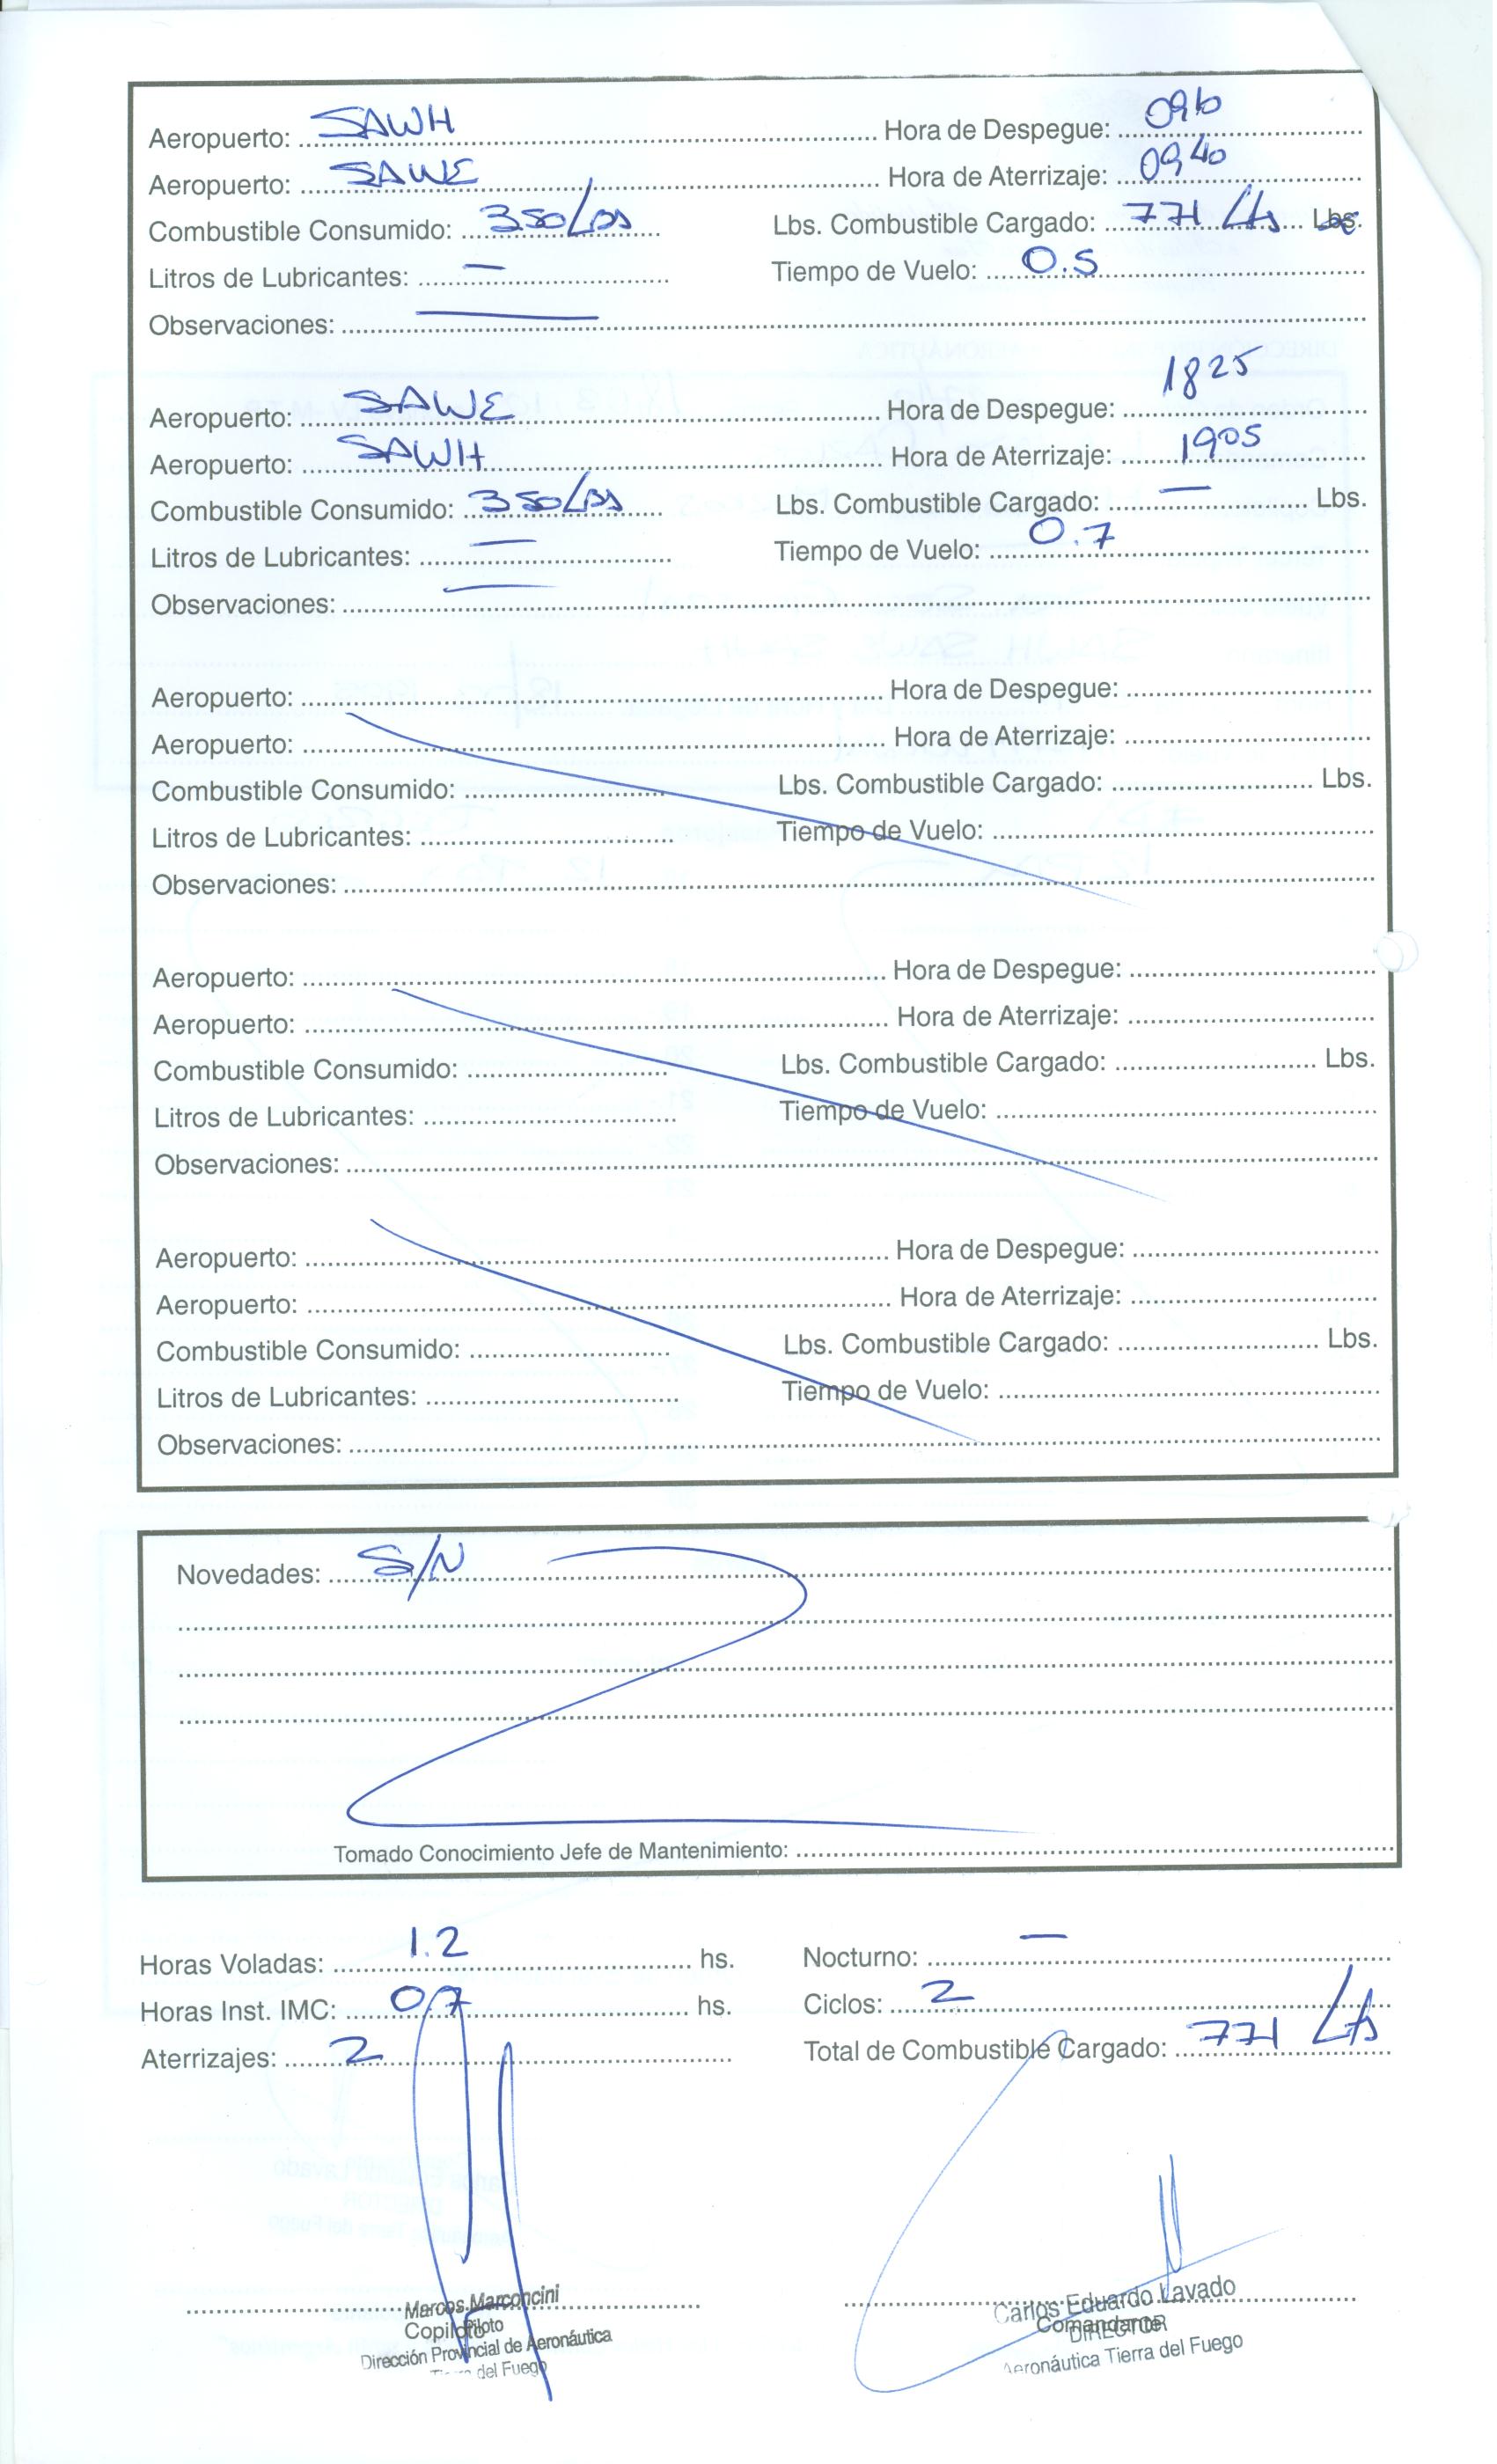 Aeropuerto: SAWH Hora de Despegue: 0910
Aeropuerto: SAWE Hora de Aterrizaje: 0940
Combustible Consumido: 350 Lbs Lbs. Combustible Cargado: 771 Lts Lbs.
Litros de Lubricantes: — Tiempo de Vuelo: 0.5
Observaciones: —
Aeropuerto: SAWE Hora de Despegue: 1825
Aeropuerto: SAWH Hora de Aterrizaje: 1905
Combustible Consumido: 350 Lbs Lbs. Combustible Cargado: — Lbs.
Litros de Lubricantes: — Tiempo de Vuelo: 0.7
Observaciones: —
Aeropuerto: Hora de Despegue:
Aeropuerto: Hora de Aterrizaje:
Combustible Consumido: Lbs. Combustible Cargado: Lbs.
Litros de Lubricantes: Tiempo de Vuelo:
Observaciones:
Aeropuerto: Hora de Despegue:
Aeropuerto: Hora de Aterrizaje:
Combustible Consumido: Lbs. Combustible Cargado: Lbs.
Litros de Lubricantes: Tiempo de Vuelo:
Observaciones:
Aeropuerto: Hora de Despegue:
Aeropuerto: Hora de Aterrizaje:
Combustible Consumido: Lbs. Combustible Cargado: Lbs.
Litros de Lubricantes: Tiempo de Vuelo:
Observaciones:
Novedades: S/N
Tomado Conocimiento Jefe de Mantenimiento:
Horas Voladas: 1.2 hs. Nocturno: —
Horas Inst. IMC: 0.7 hs. Ciclos: 2
Aterrizajes: 2 Total de Combustible Cargado: 771 Lts
Marcos Marconcini
Copiloto Piloto
Dirección Provincial de Aeronáutica
Tierra del Fuego
Carlos Eduardo Lavado
Comandante
DIRECTOR
Aeronáutica Tierra del Fuego